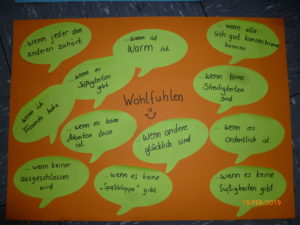 ...wenn jeder den
anderen zuhört
...wenn es
warm ist.
...wenn alle
sich gut konzentrieren
können
...wenn es
Süßigkeiten
gibt
...wenn keine
Streitigkeiten
sind
...wenn ich
Freunde habe
Wohlfühlen
...wenn es beim
Arbeiten leise
ist.
...wenn andere
glücklich sind
...wenn es
ordentlich ist.
...wenn keiner
ausgeschlossen
wird
...wenn es keine
gibt
...wenn es keine
Süßigkeiten gibt
18/FEB/2019